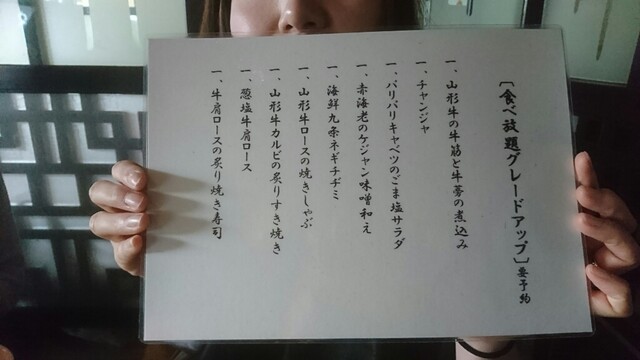 〔食べ放題グレードアップ〕要予約
一、山形牛の牛筋と牛蒡の煮込み
一、チャンジャ
一、パリパリキャベツのごま塩サラダ
一、赤海老のケジャン味噌和え
一、海鮮九条ネギチヂミ
一、山形牛ロースの焼きしゃぶ
一、山形牛カルビの炙りすき焼き
一、葱塩牛肩ロース
一、牛肩ロースの炙り焼き寿司